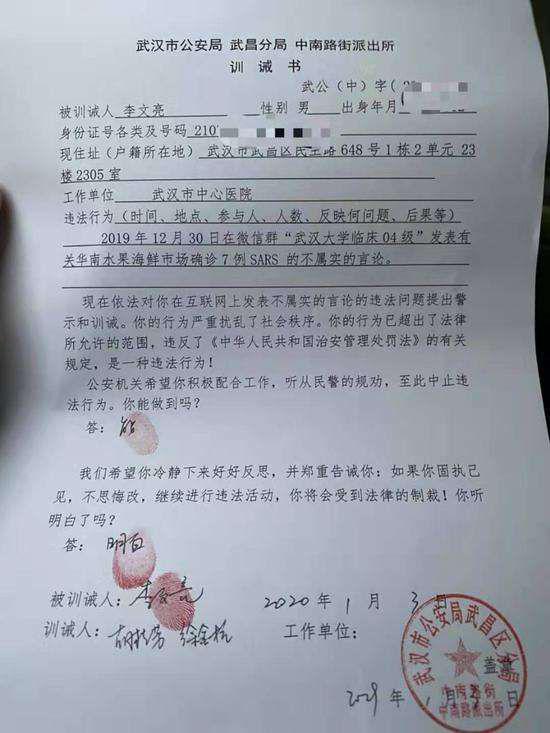 武汉市公安局 武昌分局 中南路街派出所
训诫书
武公（中）字（
被训诫人 李文亮 性别 男 出身年月
身份证号各类及号码 210
现住址（户籍所在地） 武汉市武昌区民主路 648 号 1 栋 2 单元 23
楼 2305 室
工作单位 武汉市中心医院
违法行为（时间、地点、参与人、人数、反映何问题、后果等）
2019 年 12 月 30 日在微信群“武汉大学临床 04 级”发表有
关华南水果海鲜市场确诊 7 例 SARS 的不属实的言论。
现在依法对你在互联网上发表不属实的言论的违法问题提出警
示和训诫。你的行为严重扰乱了社会秩序。你的行为已超出了法律
所允许的范围，违反了《中华人民共和国治安管理处罚法》的有关
规定，是一种违法行为！
公安机关希望你积极配合工作，听从民警的规劝，至此中止违
法行为。你能做到吗？
答：能
我们希望你冷静下来好好反思，并郑重告诫你：如果你固执己
见，不思悔改，继续进行违法活动，你将会受到法律的制裁！你听
明白了吗？
答：明白
被训诫人：李文亮 2020 年 1 月 3 日
训诫人： 工作单位：
武汉市公安局武昌区分局
盖章
中南路街
中南路派出所
年 月 日